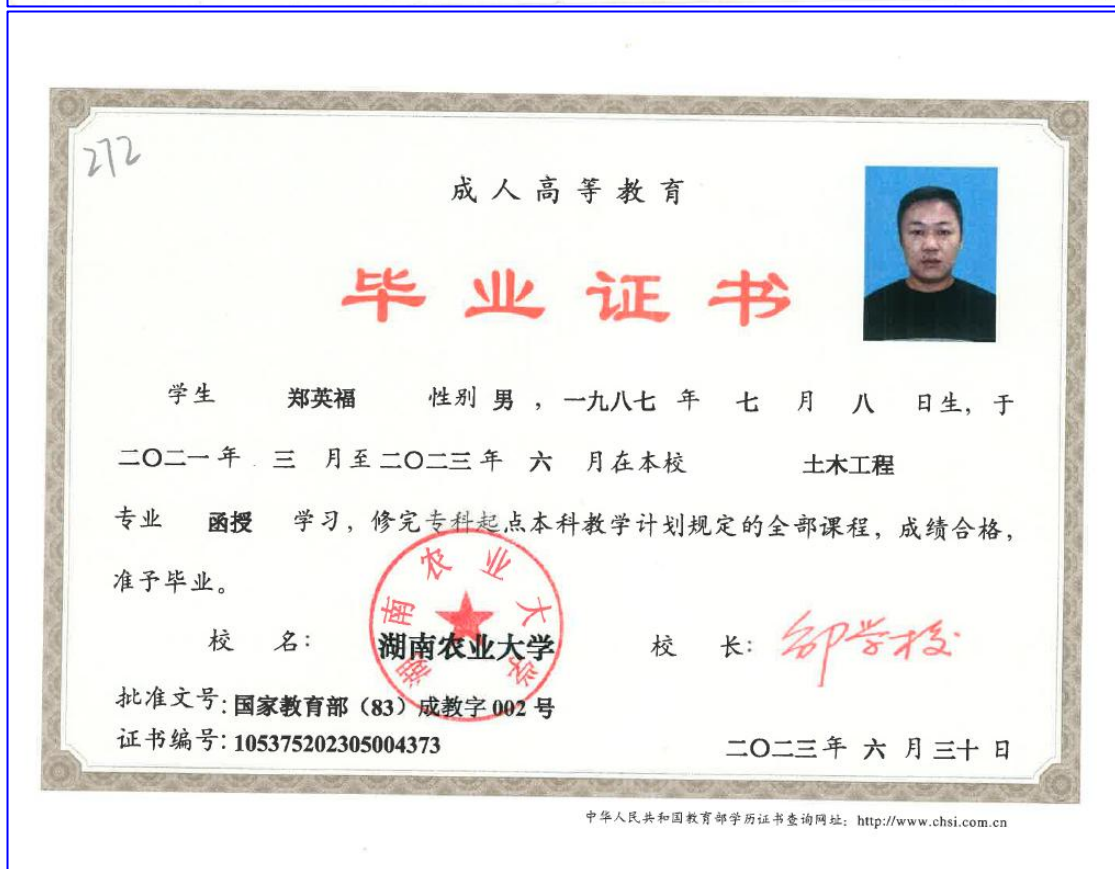 272
成人高等教育
毕业证书
学生 郑英福 性别 男 ，一九八七 年 七 月 八 日生，于
二〇二一年 三 月至二〇二三年 六 月在本校 土木工程
专业 函授 学习，修完专科起点本科教学计划规定的全部课程，成绩合格，
准予毕业。
湖南农业大学
校 名：湖南农业大学 校 长：邹学校
批准文号：国家教育部（83）成教字 002 号
证书编号：105375202305004373 二〇二三年 六 月 三十 日
中华人民共和国教育部学历证书查询网址：http://www.chsi.com.cn